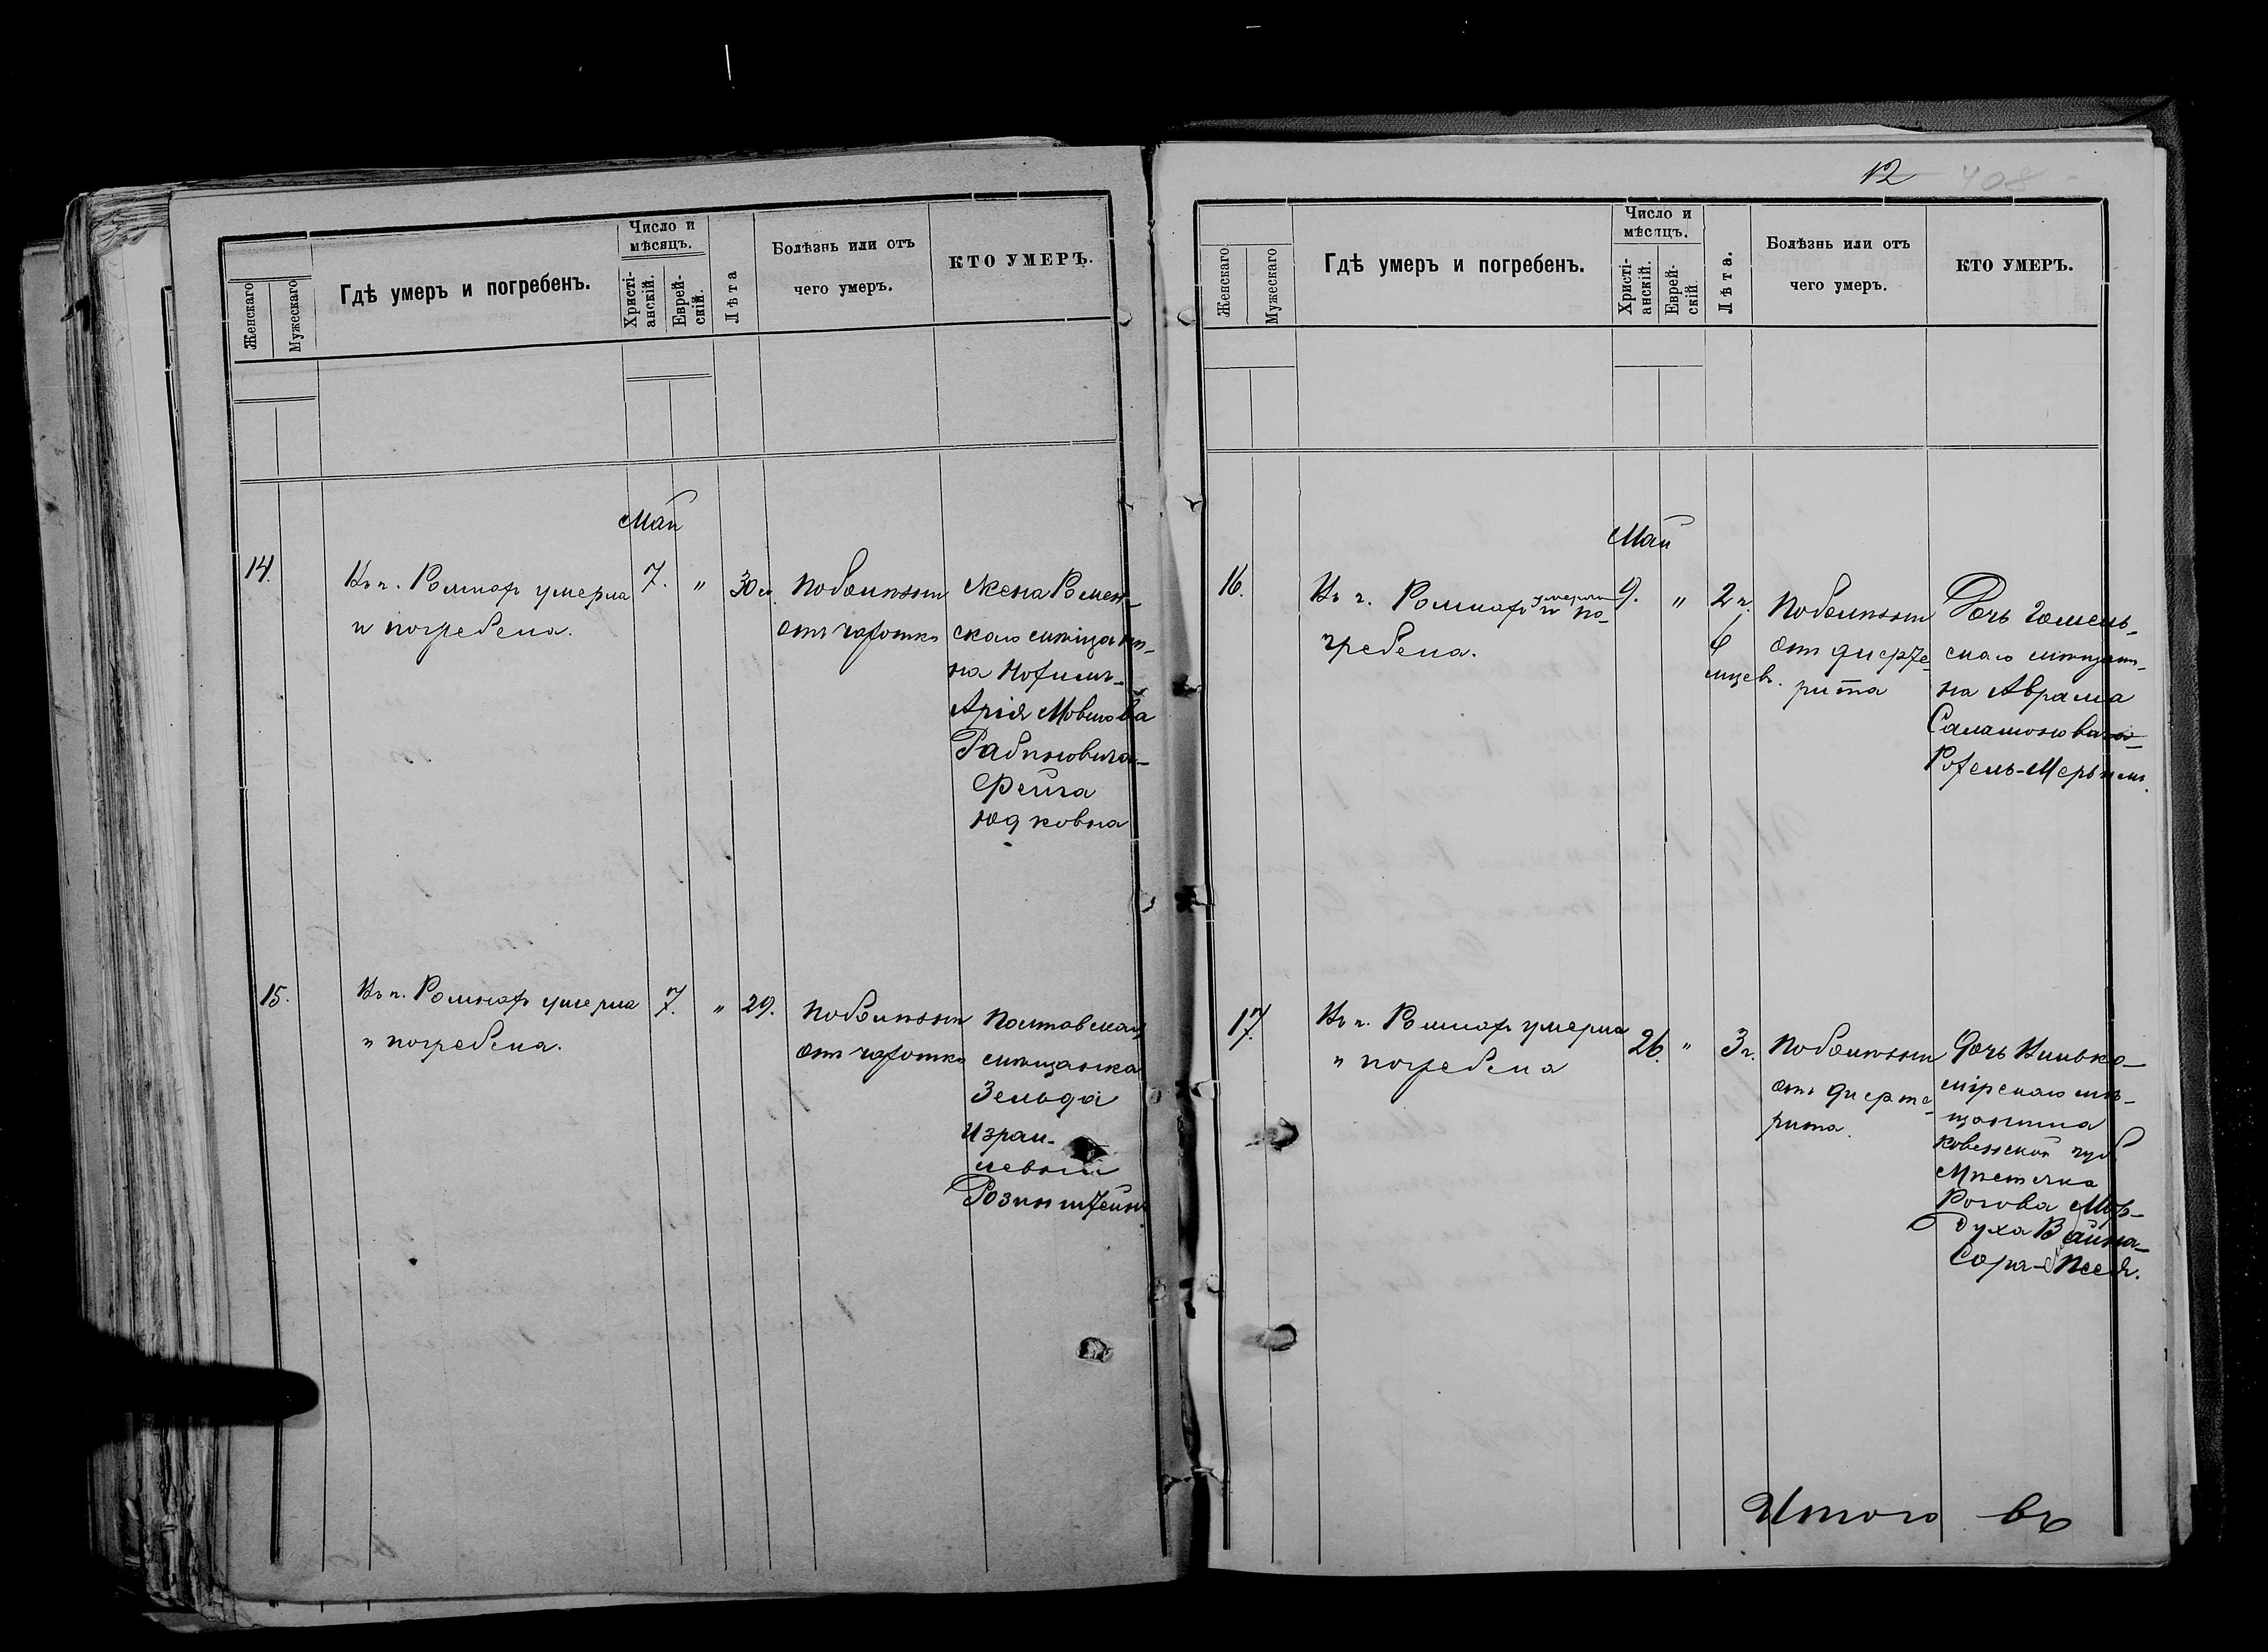 Женскаго
Мужескаго
Гдѣ умеръ и погребенъ.
Число и
мѣсяцъ.
Христі-
анскій.
Еврей-
скій.
Лѣта
Болѣзнь или отъ
чего умеръ.
КТО УМЕРЪ.
Май
14.
Въ г. Ромнахъ умерла
и погребена.
7.
"
30 л.
По болѣзни
отъ чахотки
Жена Ромен-
скаго мѣщани-
на
Арія Мовшова
Рабиновича-
Фейга
Юдковна
15.
Въ г. Ромнахъ умерла
и погребена.
7.
"
29.
По болѣзни
отъ чахотки
Полтавская
мѣщанка
Зельда
Израи-
левна
Розинштейнъ
12
408
Женскаго
Мужескаго
Гдѣ умеръ и погребенъ.
Число и
мѣсяцъ.
Христі-
анскій.
Еврей-
скій.
Лѣта.
Болѣзнь или отъ
чего умеръ.
КТО УМЕРЪ.
Май
16.
Въ г. Ромнахъ умерла и по-
гребена.
9.
"
2 г.
6
мцевъ.
По болѣзни
отъ дифте-
рита
Дочь Гомель-
скаго мѣщани-
на Абрама
Саламонова
Рохель-Мерь
17.
Въ г. Ромнахъ умерла
и погребена
26.
"
3 г.
По болѣзни
отъ дифте-
рита.
Дочь Вилько-
мірскаго мѣ-
щанина
Ковенской губ.
Мѣстечка
Рогова Мор-
духа Вайна-
Сора-Песя.
Итого въ